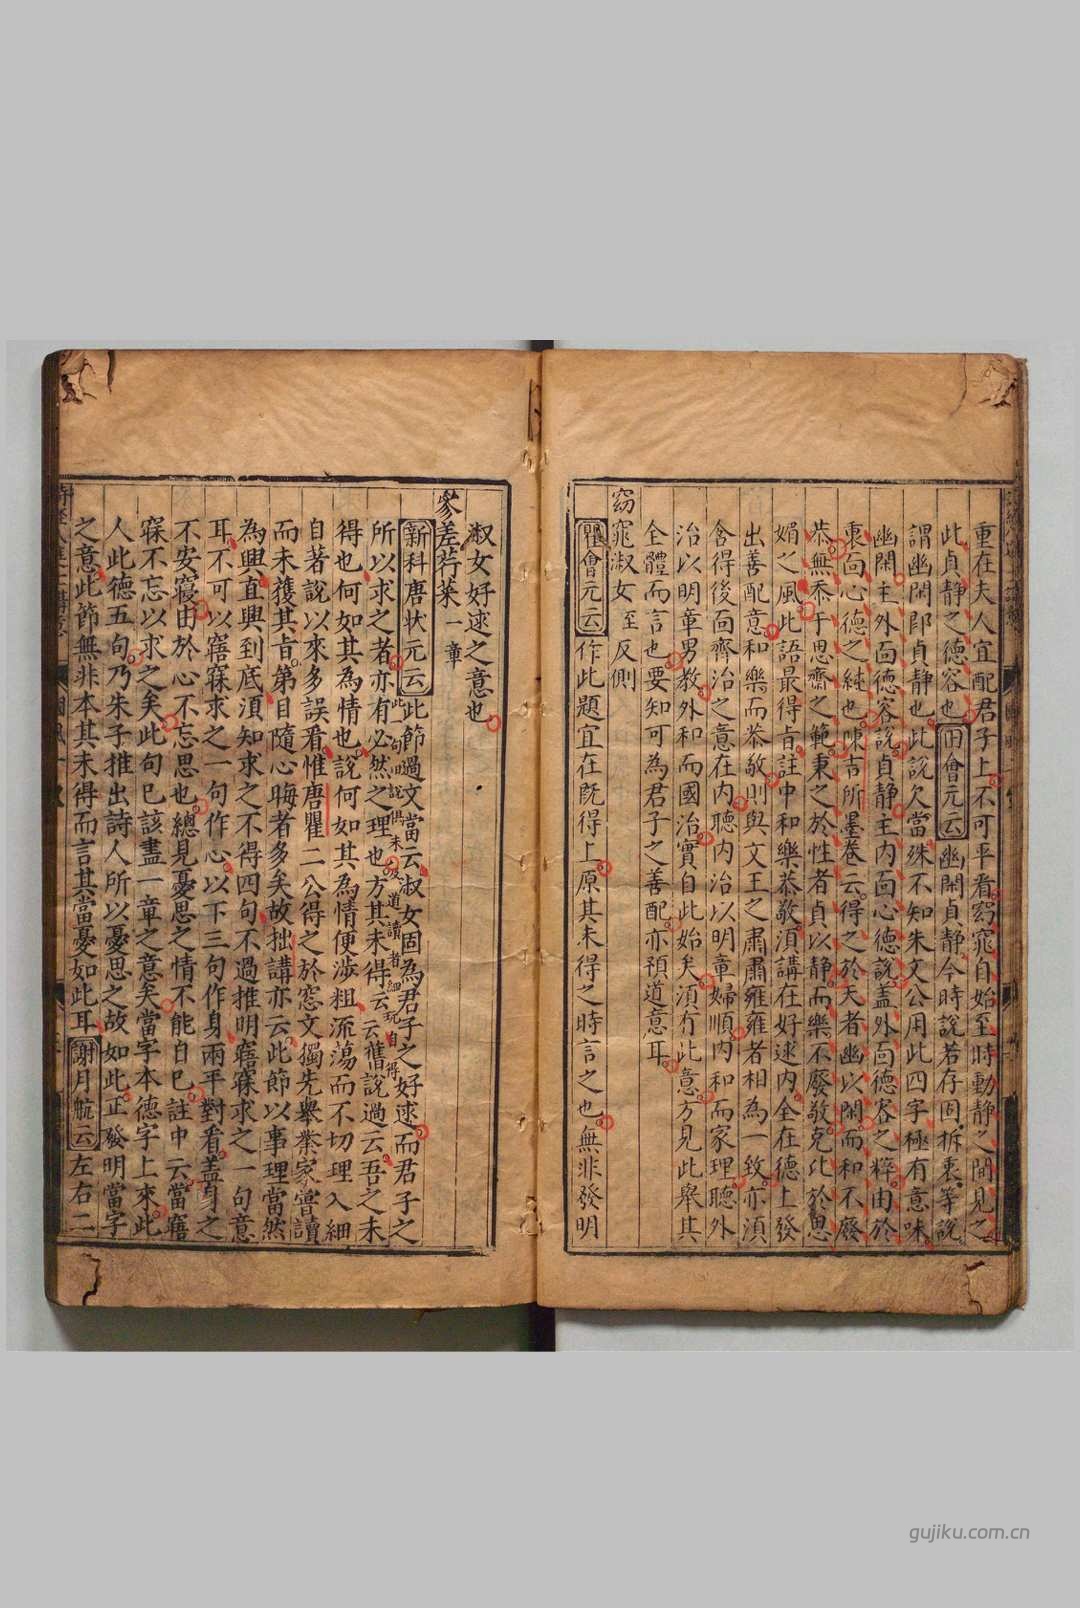 重在夫人宜配君子上不可平看窈窕自始至時動靜之間見之
此貞靜之德容也田會元云幽閑貞靜今時說若存固拆衷等說
謂幽閑即貞靜也此說欠當殊不知朱文公用此四字極有意味
幽閑主外面德容說貞靜主內面心德說盖外面德容之粹由於
衷面心德之純也陳吉所墨卷云得之於天者幽以閑而和不廢
恭無忝于思齋之範秉之於性者貞以靜而樂不廢敬克化於思
媚之風此語最得旨註中和樂恭敬須講在好逑內全在德上發
出善配意和樂而恭敬則與文王之肅肅雍雍者相為一致亦須
含得後面齊治之意在內聽內治以明章婦順內和而家理聽外
治以明章男教外和而國治實自此始矣須有此意方見此舉其
全體而言也要知可為君子之善配亦預道意耳
窈窕淑女至反側
瞿會元云作此題宜在既得上原其未得之時言之也無非發明
淑女好逑之意也
參差荇菜一章
新科唐狀元云此節過文當云淑女固為君子之好逑而君子之
所以求之者亦有必然之理也方其未得云云舊說過云吾之未
得也何如其為情也說何如其為情便涉粗流蕩而不切理入細
自著說以來多誤看惟唐瞿二公得之於窓文獨先舉業家嘗讀
而未獲其旨第目隨心晦者多矣故拙講亦云此節以事理當然
為興直興到底須知求之不得四句不過推明寤寐求之一句意
耳不可以寤寐求之一句作心以下三句作身兩平對看盖身之
不安寢由於心不忘思也總見憂思之情不能自已註中云當寤
寐不忘以求之矣此句已該盡一章之意矣當字本德字上來此
人此德五句乃朱子推出詩人所以憂思之故如此正發明當字
之意此節無非本其未得而言其當憂如此耳謝月航云左右二